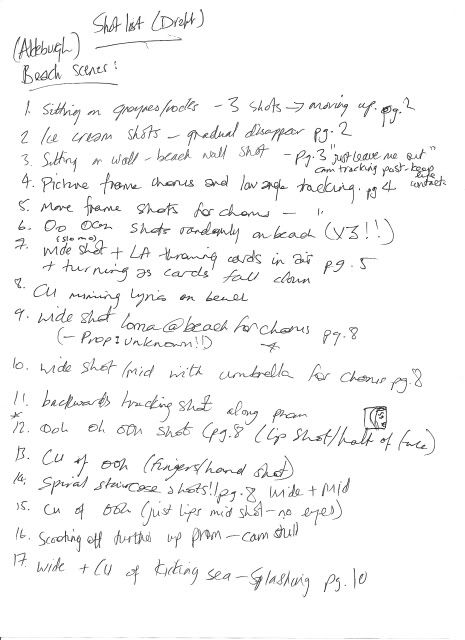 Shot list (Draft)
(Aldeburgh)
Beach scenes:
1. Sitting on groynes/rocks - 3 shots → moving up. pg. 2
2 Ice cream shots - gradual disappear pg. 2
3. Sitting on wall - beach wall shot - pg. 3 "just leave me out"
cam tracking past - keep eye contact.
4. Picture frame chorus and low angle tracking. pg 4
5. More frame shots for chorus - "
6. Oo Ooh shots randomly on beach (x3!!)
(slo mo)
7. wide shot + LA throwing cards in air pg. 5
+ turning as cards fall down
8. CU miming lyrics on bench
9. wide shot Lorna @ beach for chorus pg. 8
(- Prop: unknown!!) *
10. wide shot/mid with umbrella for chorus pg. 8
11. backwards tracking shot along prom
* 12. Ooh oh ooh shot (pg. 8 (lip shot/half of face)
13. CU of ooh (fingers/hand shot)
14. Spiral staircase shots!! pg. 8 wide + mid
15. CU of ooh (just lips mid shot - no eyes)
16. Scooting off further up prom - cam still
17. wide + CU of kicking sea - splashing pg. 10